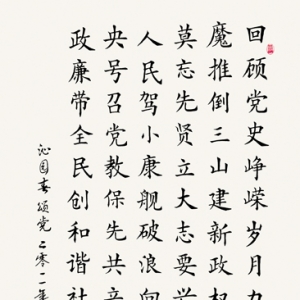 回顾党史峥嵘岁月九
魔推倒三山建新政权
莫忘先贤立大志要兴
人民驾小康舰破浪向
央号召党教保先共
政廉带全民创和谐社
沁园春颂党二零